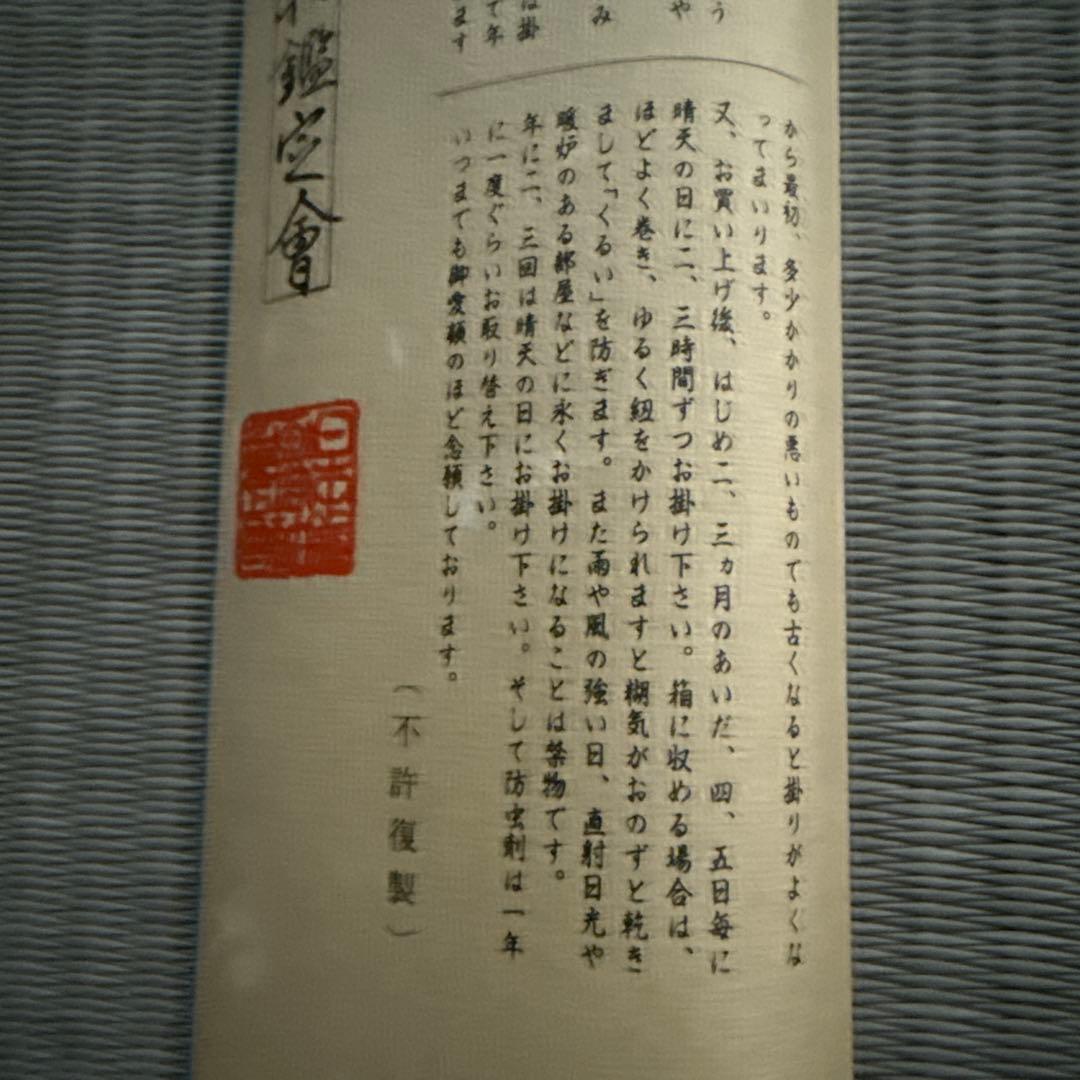 から最初、多少かかりの悪いものでも古くなると掛りがよくな
ってまいります。
又、お買い上げ後、はじめ二、三ヵ月のあいだ、四、五日毎に
晴天の日に二、三時間ずつお掛け下さい。箱に収める場合は、
ほどよく巻き、ゆるく紐をかけられますと糊気がおのずと乾き
まして「くるい」を防ぎます。また雨や風の強い日、直射日光や
暖炉のある部屋などに永くお掛けになることは禁物です。
年に二、三回は晴天の日にお掛け下さい。そして防虫剤は一年
に一度ぐらいお取り替え下さい。
いつまでも御愛顧のほど念願しております。
（不許復製）
う
や
み
は掛
て年
ます
鑑定會